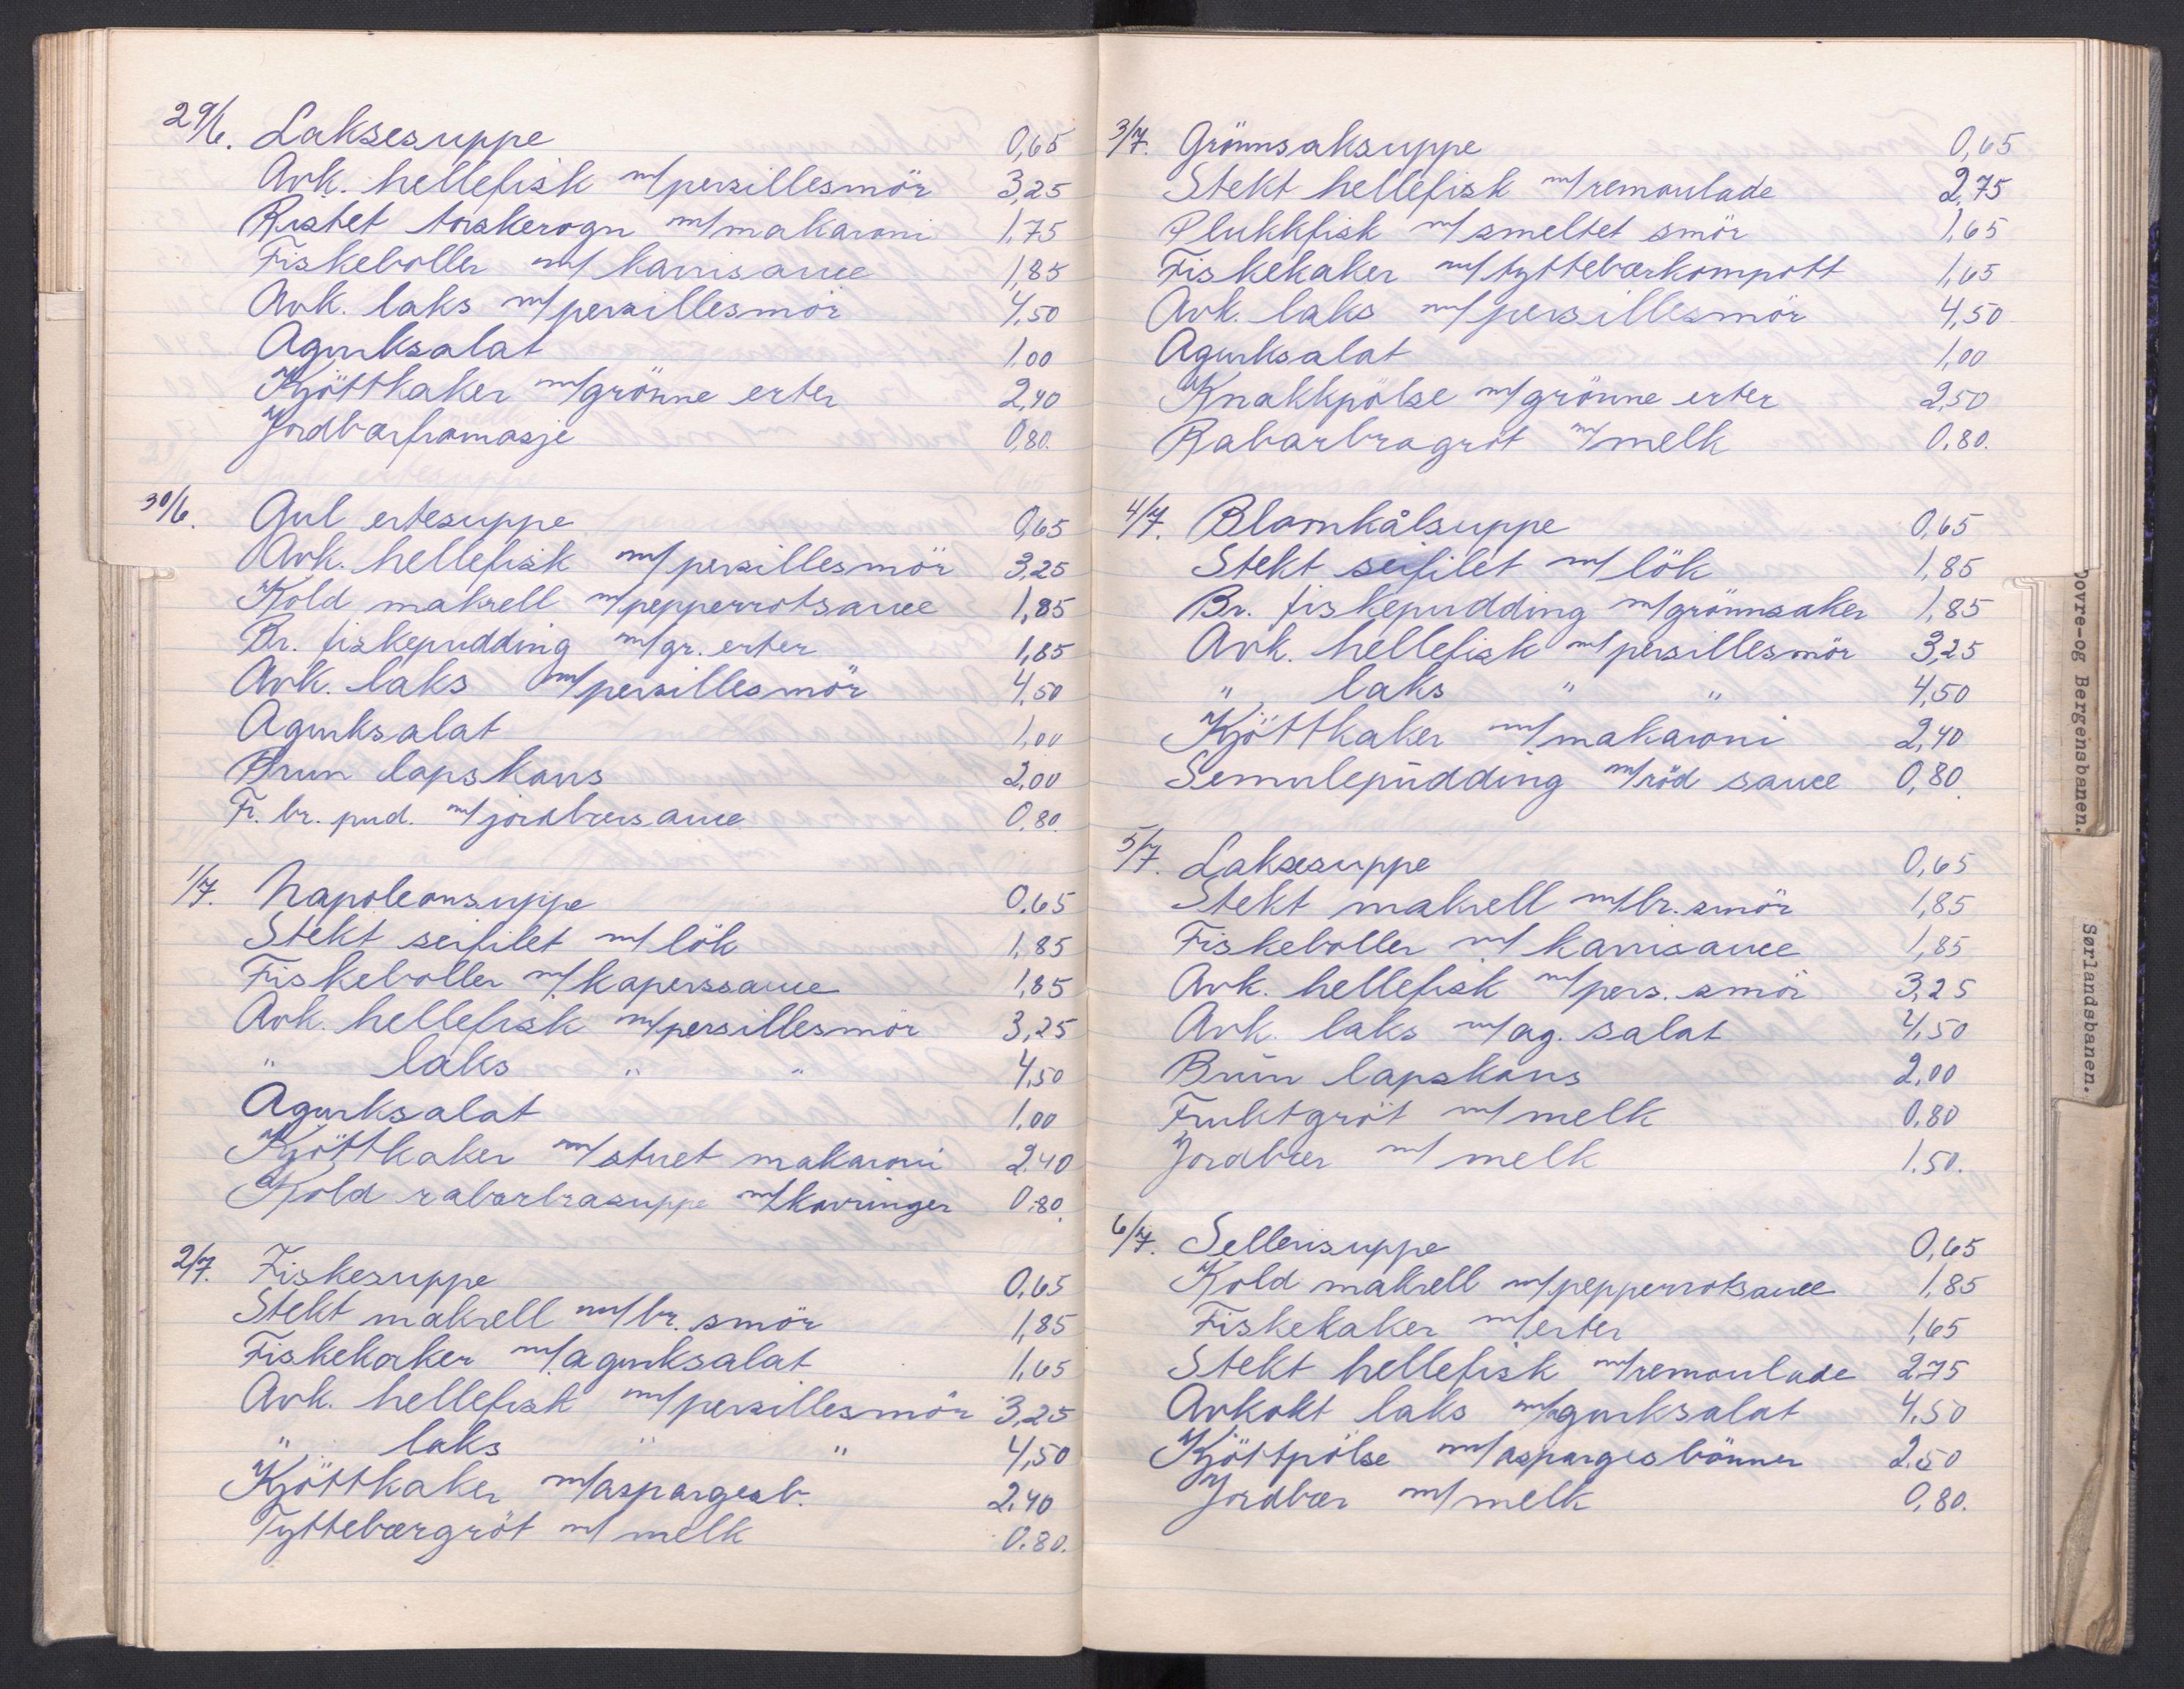 29/6. Laksesuppe 0,65
Avk. hellefisk m/persillesmör 3,25
Ristet torskerogn m/makaroni 1,75
Fiskeboller m/ karrisauce 1,85
Avk. laks m/persillesmör 4,50
Agurksalat 1,00
Kjöttkaker m/grönne erter 2,40
Jordbærfromasje 0,80.
30/6. Gul ertesuppe 0,65
Avk. hellefisk m/persillesmör 3,25
Kold makrell m/pepperrotsauce 1,85
Br. fiskepudding m/gr. erter 1,85
Avk. laks m/persillesmör 4,50
Agurksalat 1,00
Brun lapskaus 2,00
Fr. br. pud. m/jordbærsauce 0.80.
1/7. Napoleonsuppe 0.65
Stekt seifilet m/ lök 1,85
Fiskeboller m/kaperssauce 1,85
Avk. hellefisk m/persillesmör 3,25
" laks " " 4,50
Agurksalat 1,00
Kjöttkaker m/stuet makaroni 2.40
Kold rabarbrasuppe m/kavringer 0.80.
2/7. Fiskesuppe 0,65
Stekt makrell m/br. smör 1,85
Fiskekaker m/agurksalat 1,65
Avk. hellefisk m/persillesmör 3,25
" laks " " 4,50
Kjöttkaker m/aspargesb. 2.40
Tyttebærgröt m/ melk 0.80.
3/7. Grönnsaksuppe 0,65
Stekt hellefisk m/remoulade 2,75
Plukkfisk m/smeltet smör 1,65
Fiskekaker m/tyttebærkompott 1,65
Avk. laks m/persillesmör 4,50
Agurksalat 1,00
Knakkpölse m/grönne erter 2,50
Rabarbragröt m/melk 0.80.
4/7. Blomkålsuppe 0,65
Stekt seifilet m/lök 1,85
Br. fiskepudding m/grönnsaker 1,85
Avk. hellefisk m/persillesmör 3,25
" laks " " 4,50
Kjöttkaker m/makaroni 2,40
Semulepudding m/röd sauce 0,80.
5/7. Laksesuppe 0,65
Stekt makrell m/br. smör 1,85
Fiskeboller m/ karrisauce 1,85
Avk. hellefisk m/pers. smör 3,25
Avk. laks m/ag. salat 4,50
Brun lapskaus 2,00
Fruktgröt m/melk 0.80
Jordbær m/ melk 1.50.
6/7. Sellerisuppe 0,65
Kold makrell m/pepperrotsauce 1,85
Fiskekaker m/erter 1,65
Stekt hellefisk m/remoulade 2.75
Avkokt laks m/agurksalat 4.50
Kjöttpölse m/aspargesbönner 2.50
Jordbær m/melk 0,80.
Dovre-og Bergensbanen.
Sørlandsbanen.